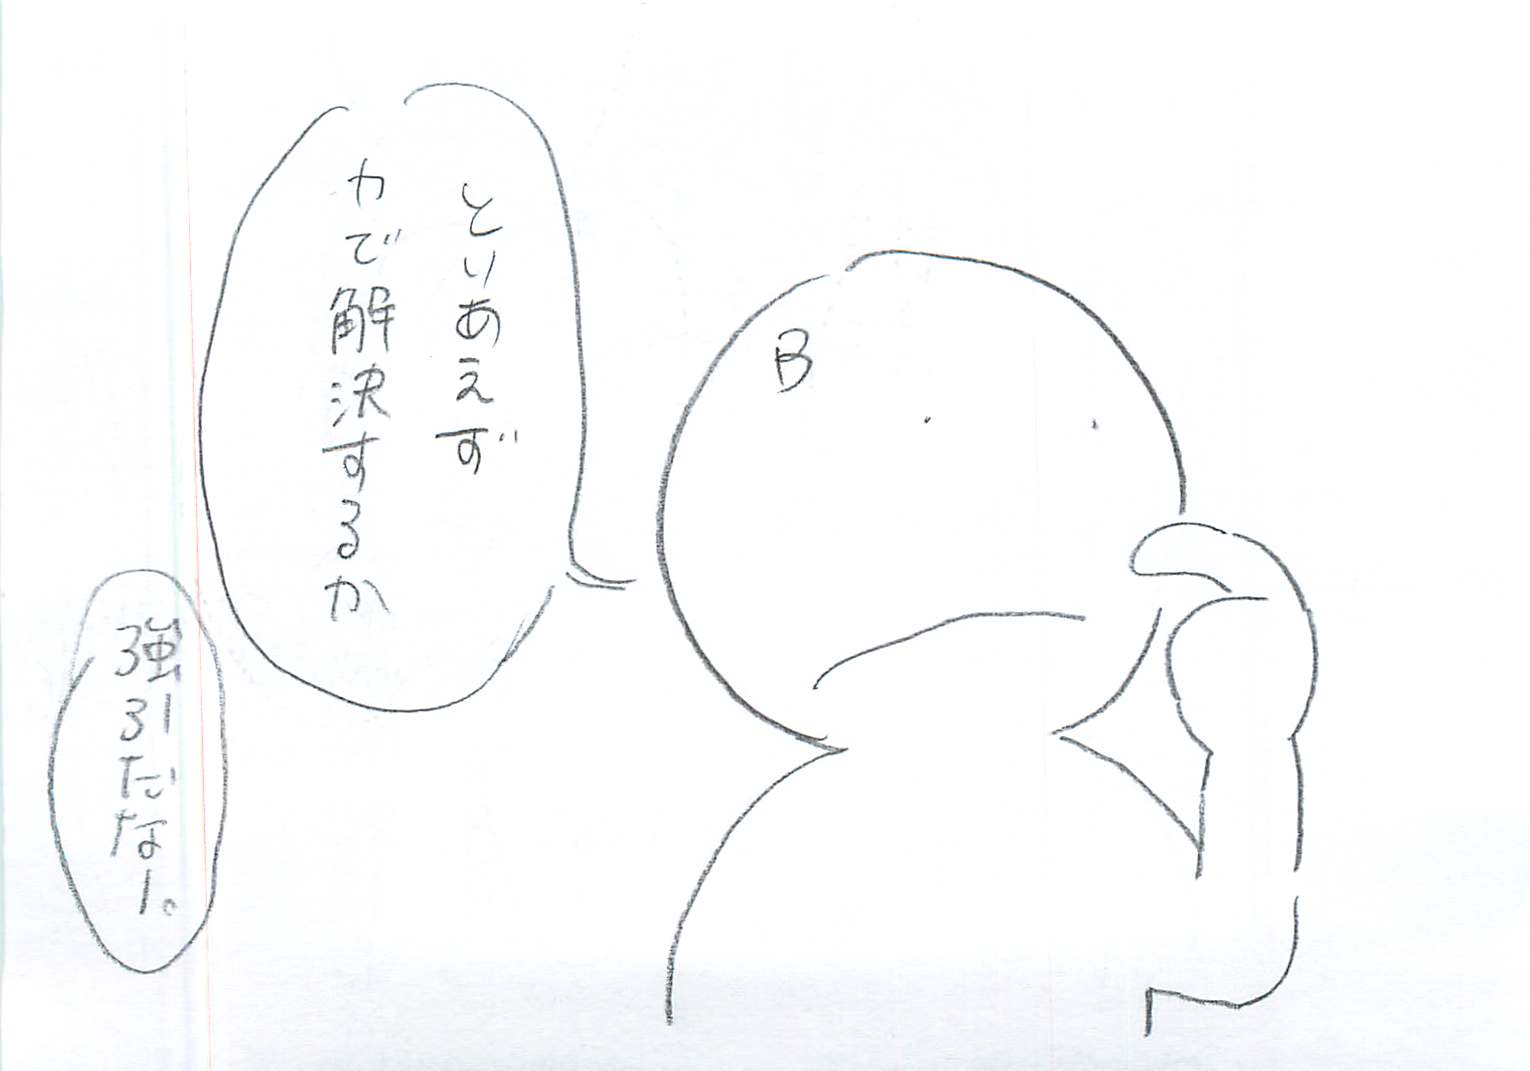 とりあえず
力で解決するか
B
強引だなー。